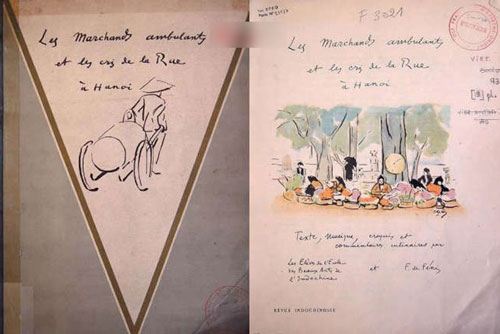 Les Marchands ambulants
et les cris de la Rue
à Hanoi
F 3021
Les Marchands ambulants
et les cris de la Rue
à Hanoi
Texte, musique, croquis et
commentaires culinaires par
Les Elèves de l'Ecole
des Beaux Arts de
l'Indochine
et F. de Fénis
REVUE INDOCHINOISE